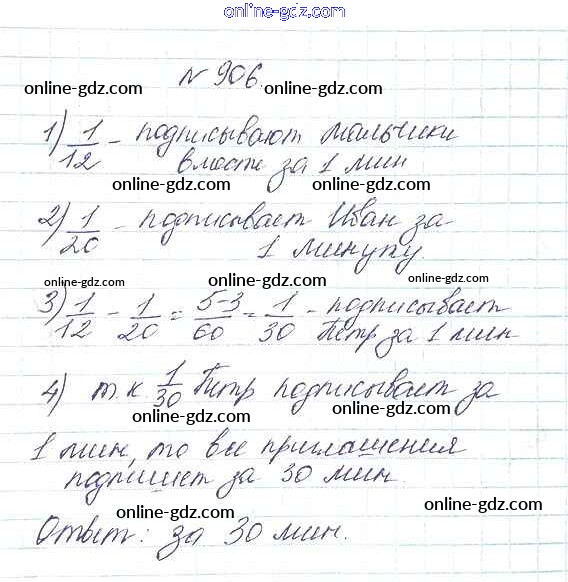 online-gdz.com
№ 906.
online-gdz.com online-gdz.com
1) 1/12 - подписывают мальчики
вместе за 1 мин
online-gdz.com online-gdz.com
2) 1/20 - подписывает Иван за
1 минуту.
online-gdz.com online-gdz.com online-gdz.com
3) 1/12 - 1/20 = 5-3/60 = 1/30 - подписывает
Петр за 1 мин
online-gdz.com online-gdz.com
4) т.к. 1/30 Петр подписывает за
online-gdz.com online-gdz.com
1 мин, то все приглашения
подпишет за 30 мин.
online-gdz.com online-gdz.com
Ответ: за 30 мин.
online-gdz.com online-gdz.com